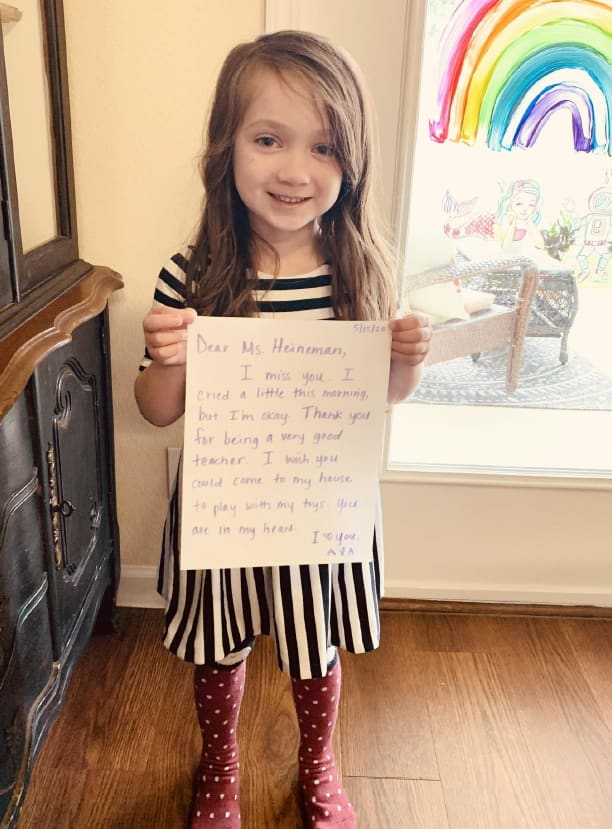 5/15/20
Dear Ms. Heineman,
I miss you. I
cried a little this morning,
but I'm okay. Thank you
for being a very good
teacher. I wish you
could come to my house
to play with my toys. You
are in my heart.
I ♡ you.
AVA